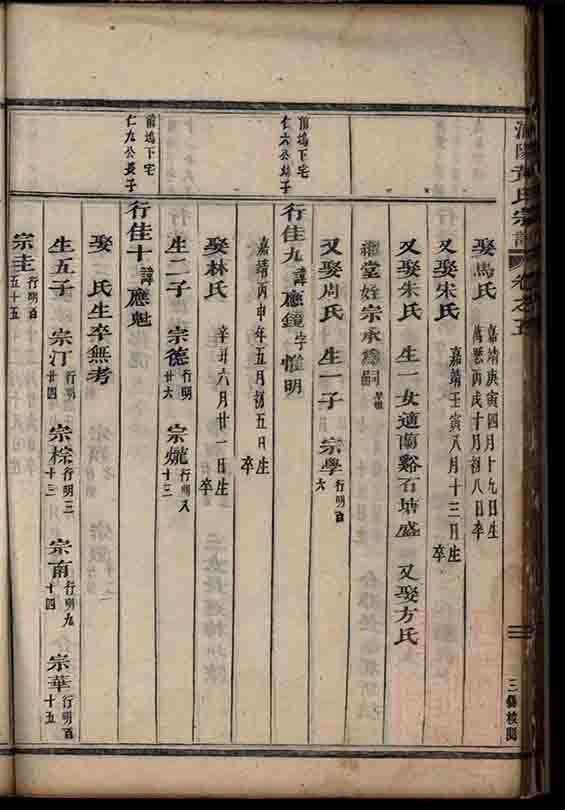 浦陽黃氏宗譜 卷之五
三善校閱
娶馬氏 嘉靖庚寅四月十九日生 萬曆丙戌十月初八日卒
又娶宋氏 嘉靖壬寅八月十三日生 卒
又娶朱氏 生一女適蘭谿石塘盛 又娶方氏
繼堂姪宗承為嗣
又娶周氏 生一子 宗學 行明百六
前塢下宅 仁六公幼子
行佳九 諱應鏡 字惟明
嘉靖丙申年五月初五日生 卒
娶林氏 辛丑六月廿一日生 卒
生二子 宗德 行明廿六 宗爊 行明八十三
前塢下宅 仁九公長子
行佳十 諱應魁
娶 氏生卒無考
生五子 宗汀 行明廿四 宗棕 行明三十三 宗南 行明九十四 宗華 行明百十五
宗圭 行明百五十五